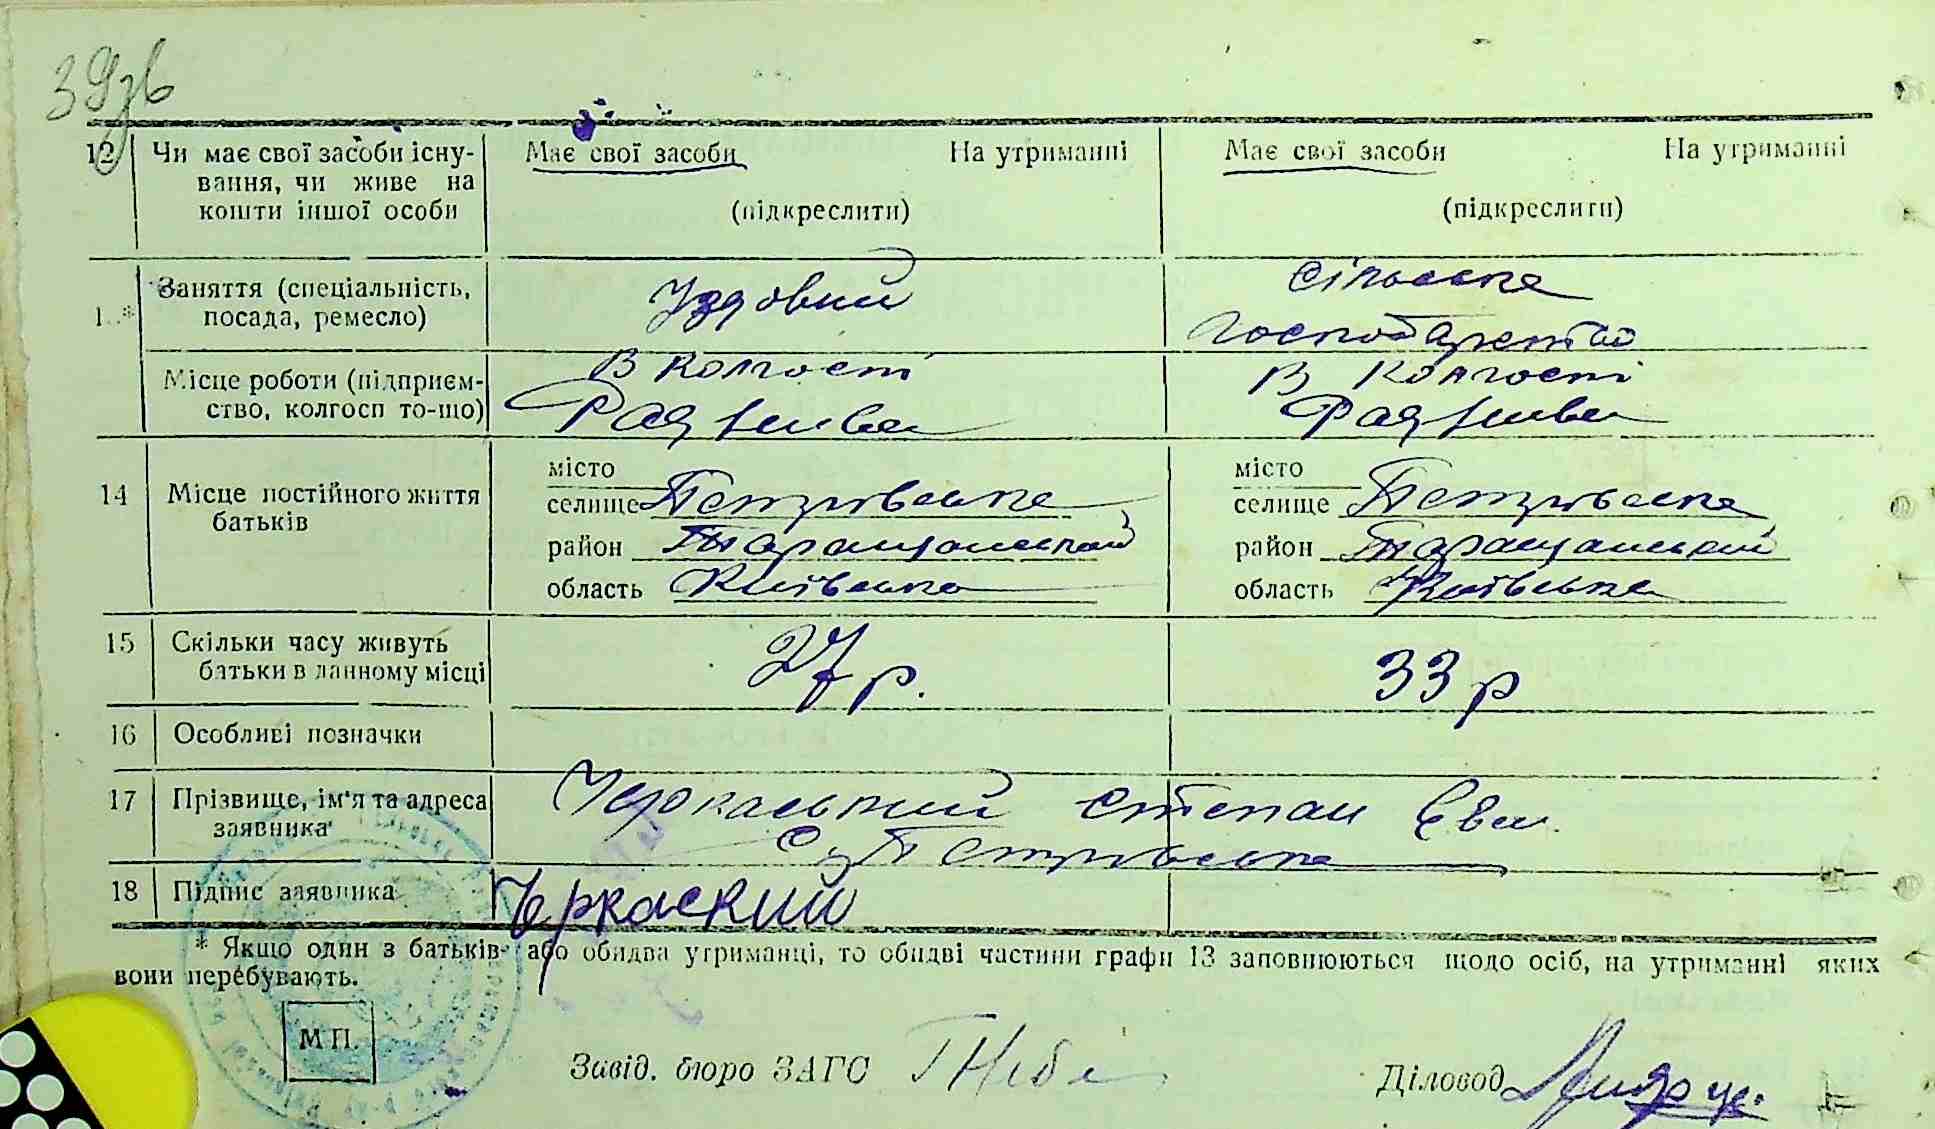 39зв
12 Чи має свої засоби існу- Має свої засоби На утриманні Має свої засоби На утриманні
вання, чи живе на
кошти іншої особи (підкреслити) (підкреслити)
Заняття (спеціальність, Їздовий Сільське
посада, ремесло) господарство
Місце роботи (підприєм- В колгоспі В колгоспі
ство, колгосп то-що)
місто місто
14 Місце постійного життя селище Петрівська селище Петрівська
батьків район Таращанський район Таращанський
область Київська область Київська
15 Скільки часу живуть 27 р. 33 р
батьки в данному місці
16 Особливі позначки
17 Прізвище, ім'я та адреса Черкаський Степан Єв
заявника с. Петрівська
18 Підпис заявника Черкаский
* Якщо один з батьків або обидва утриманці, то обидві частини графи 13 заповнюються щодо осіб, на утриманні яких
вони перебувають.
М П.
Завід. бюро ЗАГС Діловод